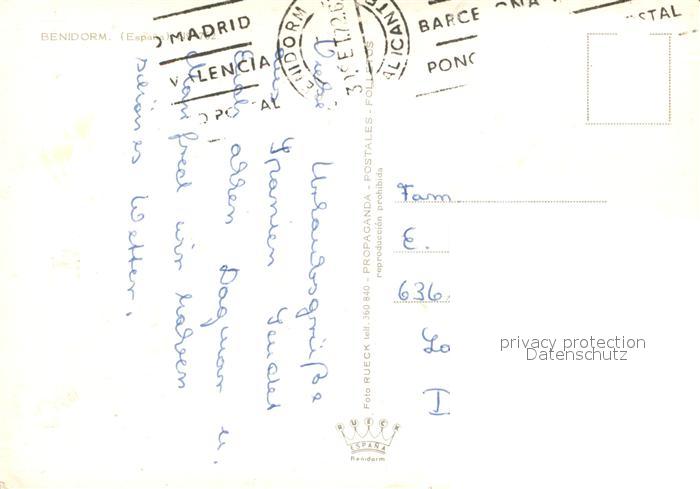 BENIDORM. (España)
MADRID
VALENCIA
BENIDORM
ALICANTE
BARCE ONA
PONG
STAL
Viele
Urlaubsgrüße
aus Spanien sendet
Euch allen Dagmar u.
Manfred wir haben
schönes Wetter.
Foto RUECK telf. 360 840 - PROPAGANDA - POSTALES - FOLLETOS
reproducción prohibida
RUECK
ESPAÑA
Benidorm
Fam.
E.
636
Lo
privacy protection
Datenschutz